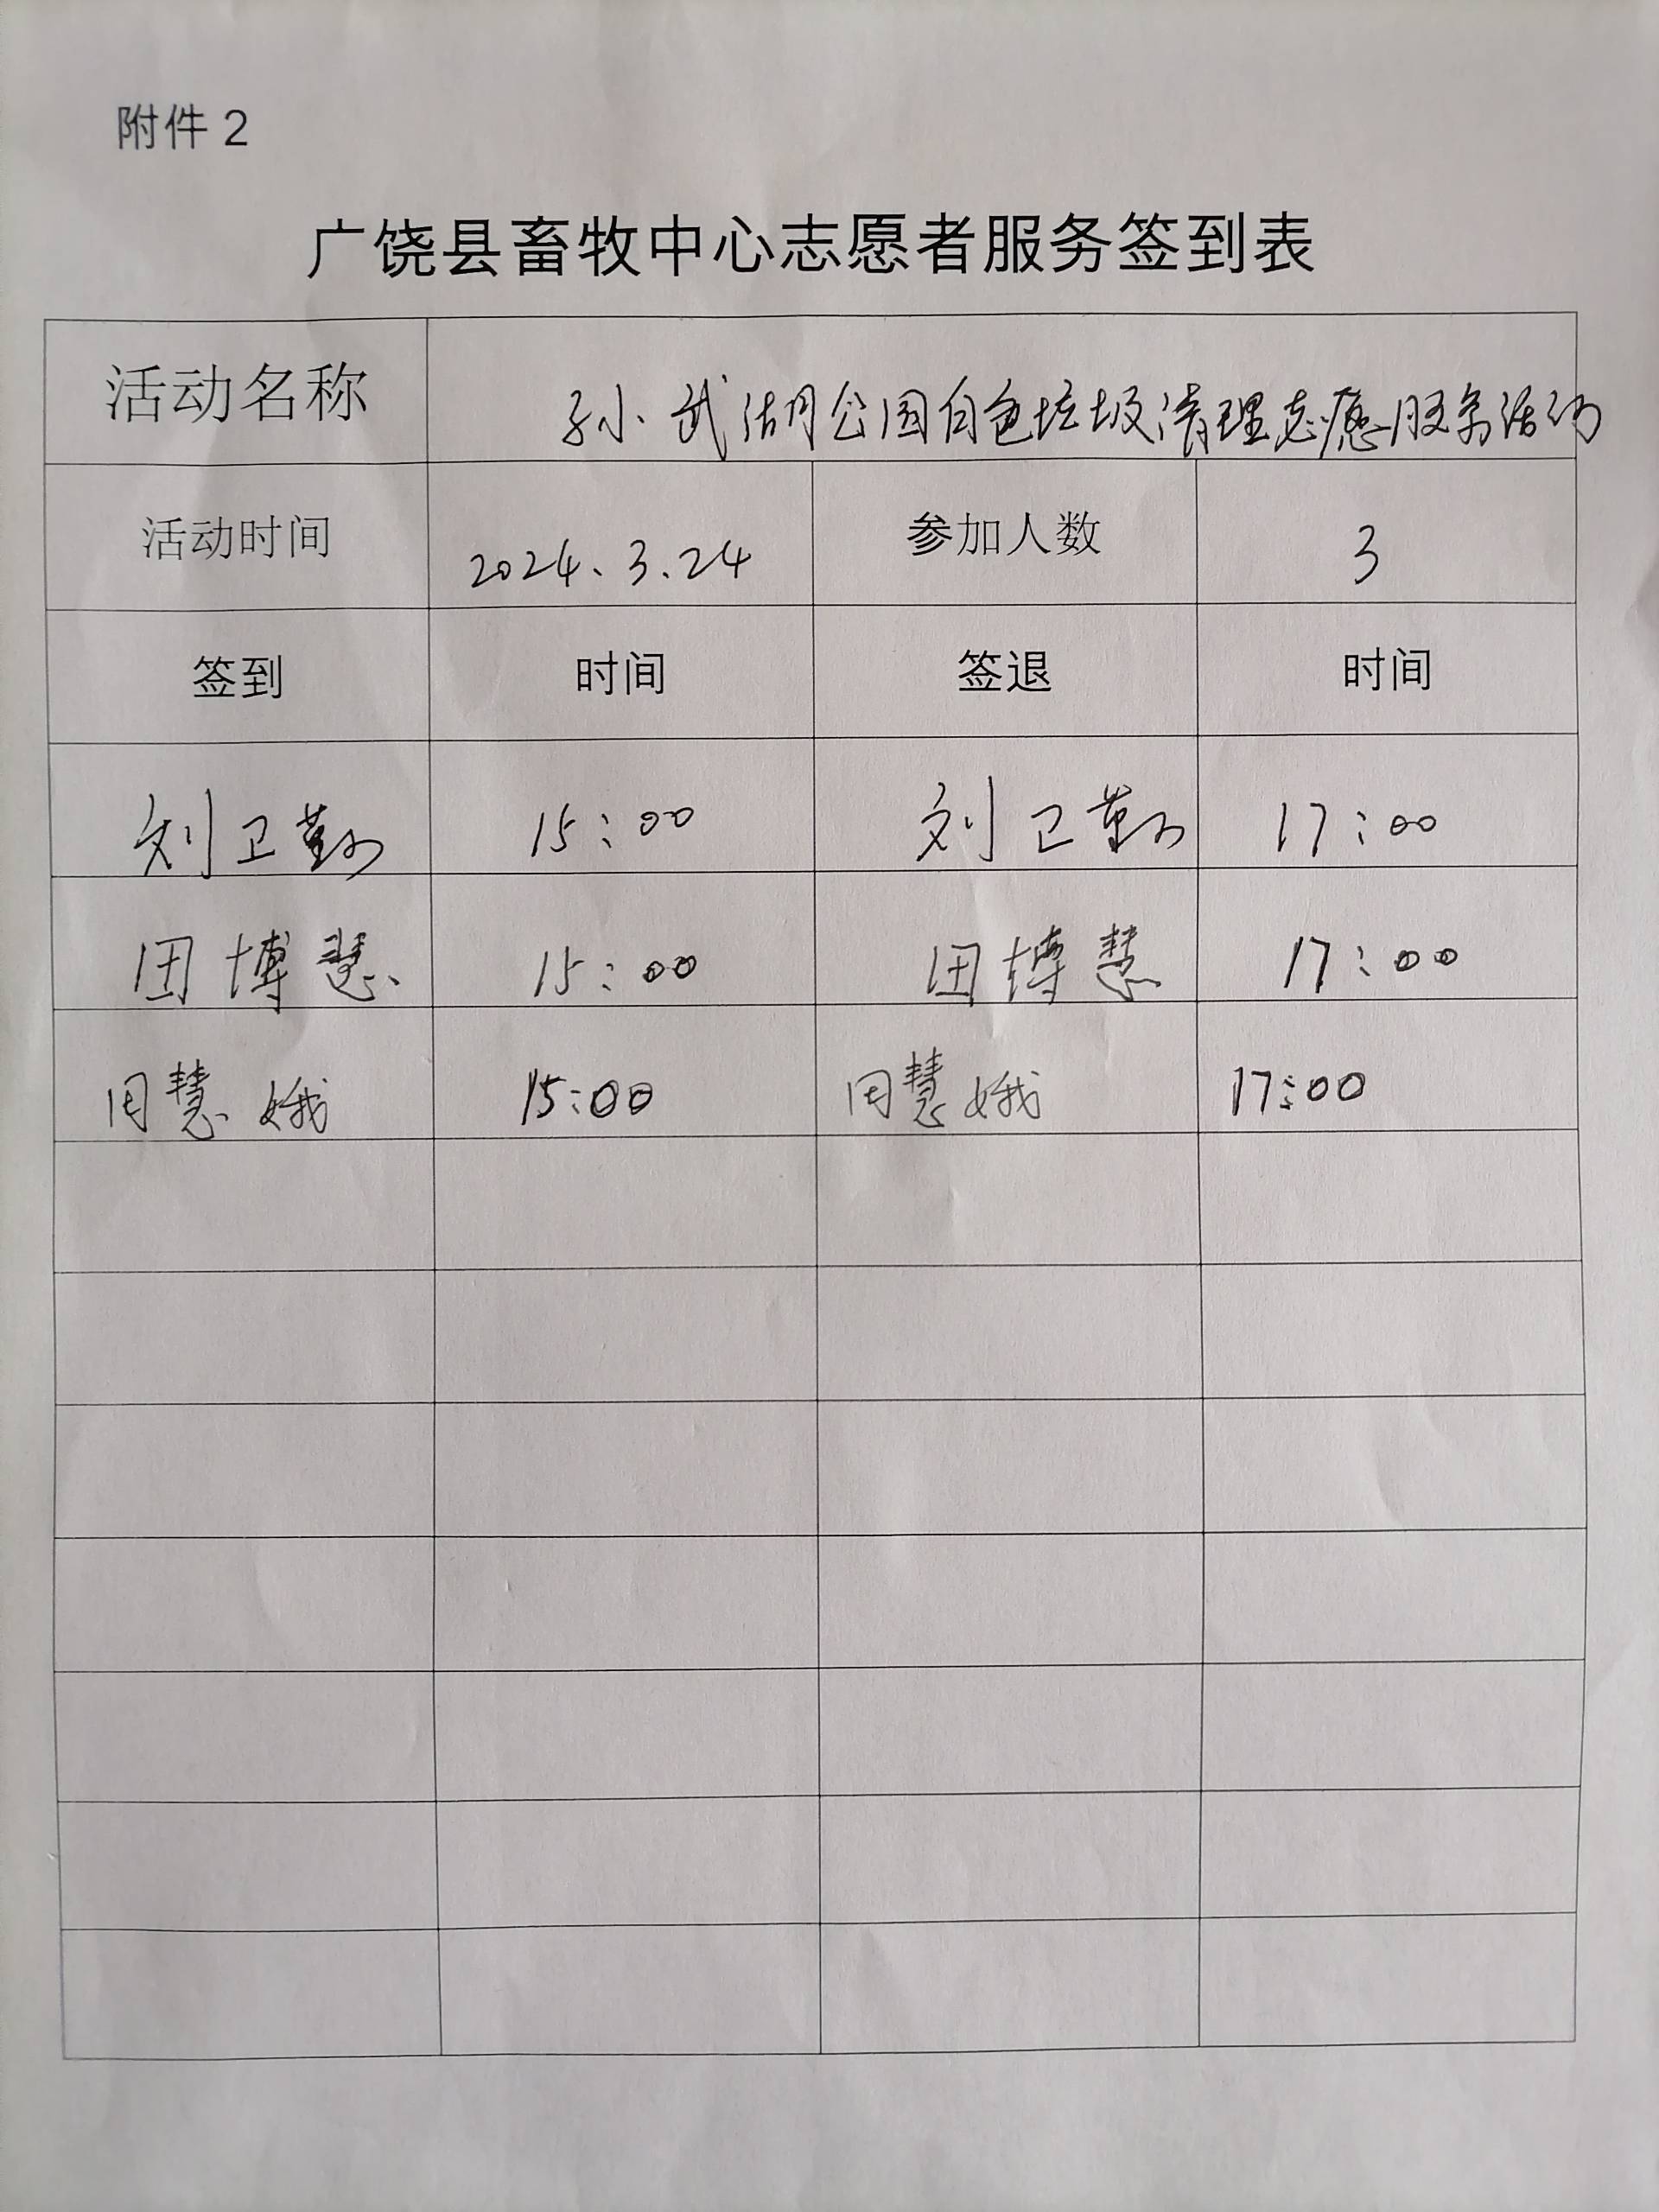 附件 2
广饶县畜牧中心志愿者服务签到表
活动名称 孙武湖公园白色垃圾清理志愿服务活动
活动时间 2024.3.24 参加人数 3
签到 时间 签退 时间
刘卫勤 15:00 刘卫勤 17:00
田博慧 15:00 田博慧 17:00
周慧娥 15:00 周慧娥 17:00